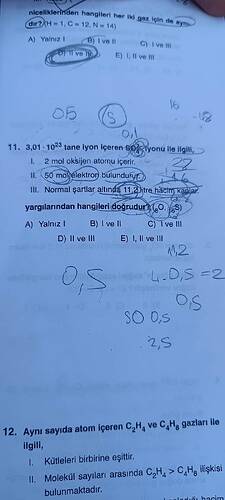 niceliklerinden hangileri her iki gaz için de aynı-
dır? (H = 1, C = 12, N = 14)
A) Yalnız I B) I ve II C) I ve III
D) II ve III E) I, II ve III
0,5 S 16
0,1
11. 3,01 · 10²³ tane iyon içeren iyonu ile ilgili,
I. 2 mol oksijen atomu içerir.
II. 50 mol elektron bulundurur.
III. Normal şartlar altında 11,2 litre hacim kaplar.
yargılarından hangileri doğrudur? (₈O, ₁₆S)
A) Yalnız I B) I ve II C) I ve III
D) II ve III E) I, II ve III
11,2
0,5 4.0,5 = 2
0,5
50 0,5
2,5
12. Aynı sayıda atom içeren C₂H₄ ve C₄H₈ gazları ile
ilgili,
I. Kütleleri birbirine eşittir.
II. Molekül sayıları arasında C₂H₄ > C₄H₈ ilişkisi
bulunmaktadır.